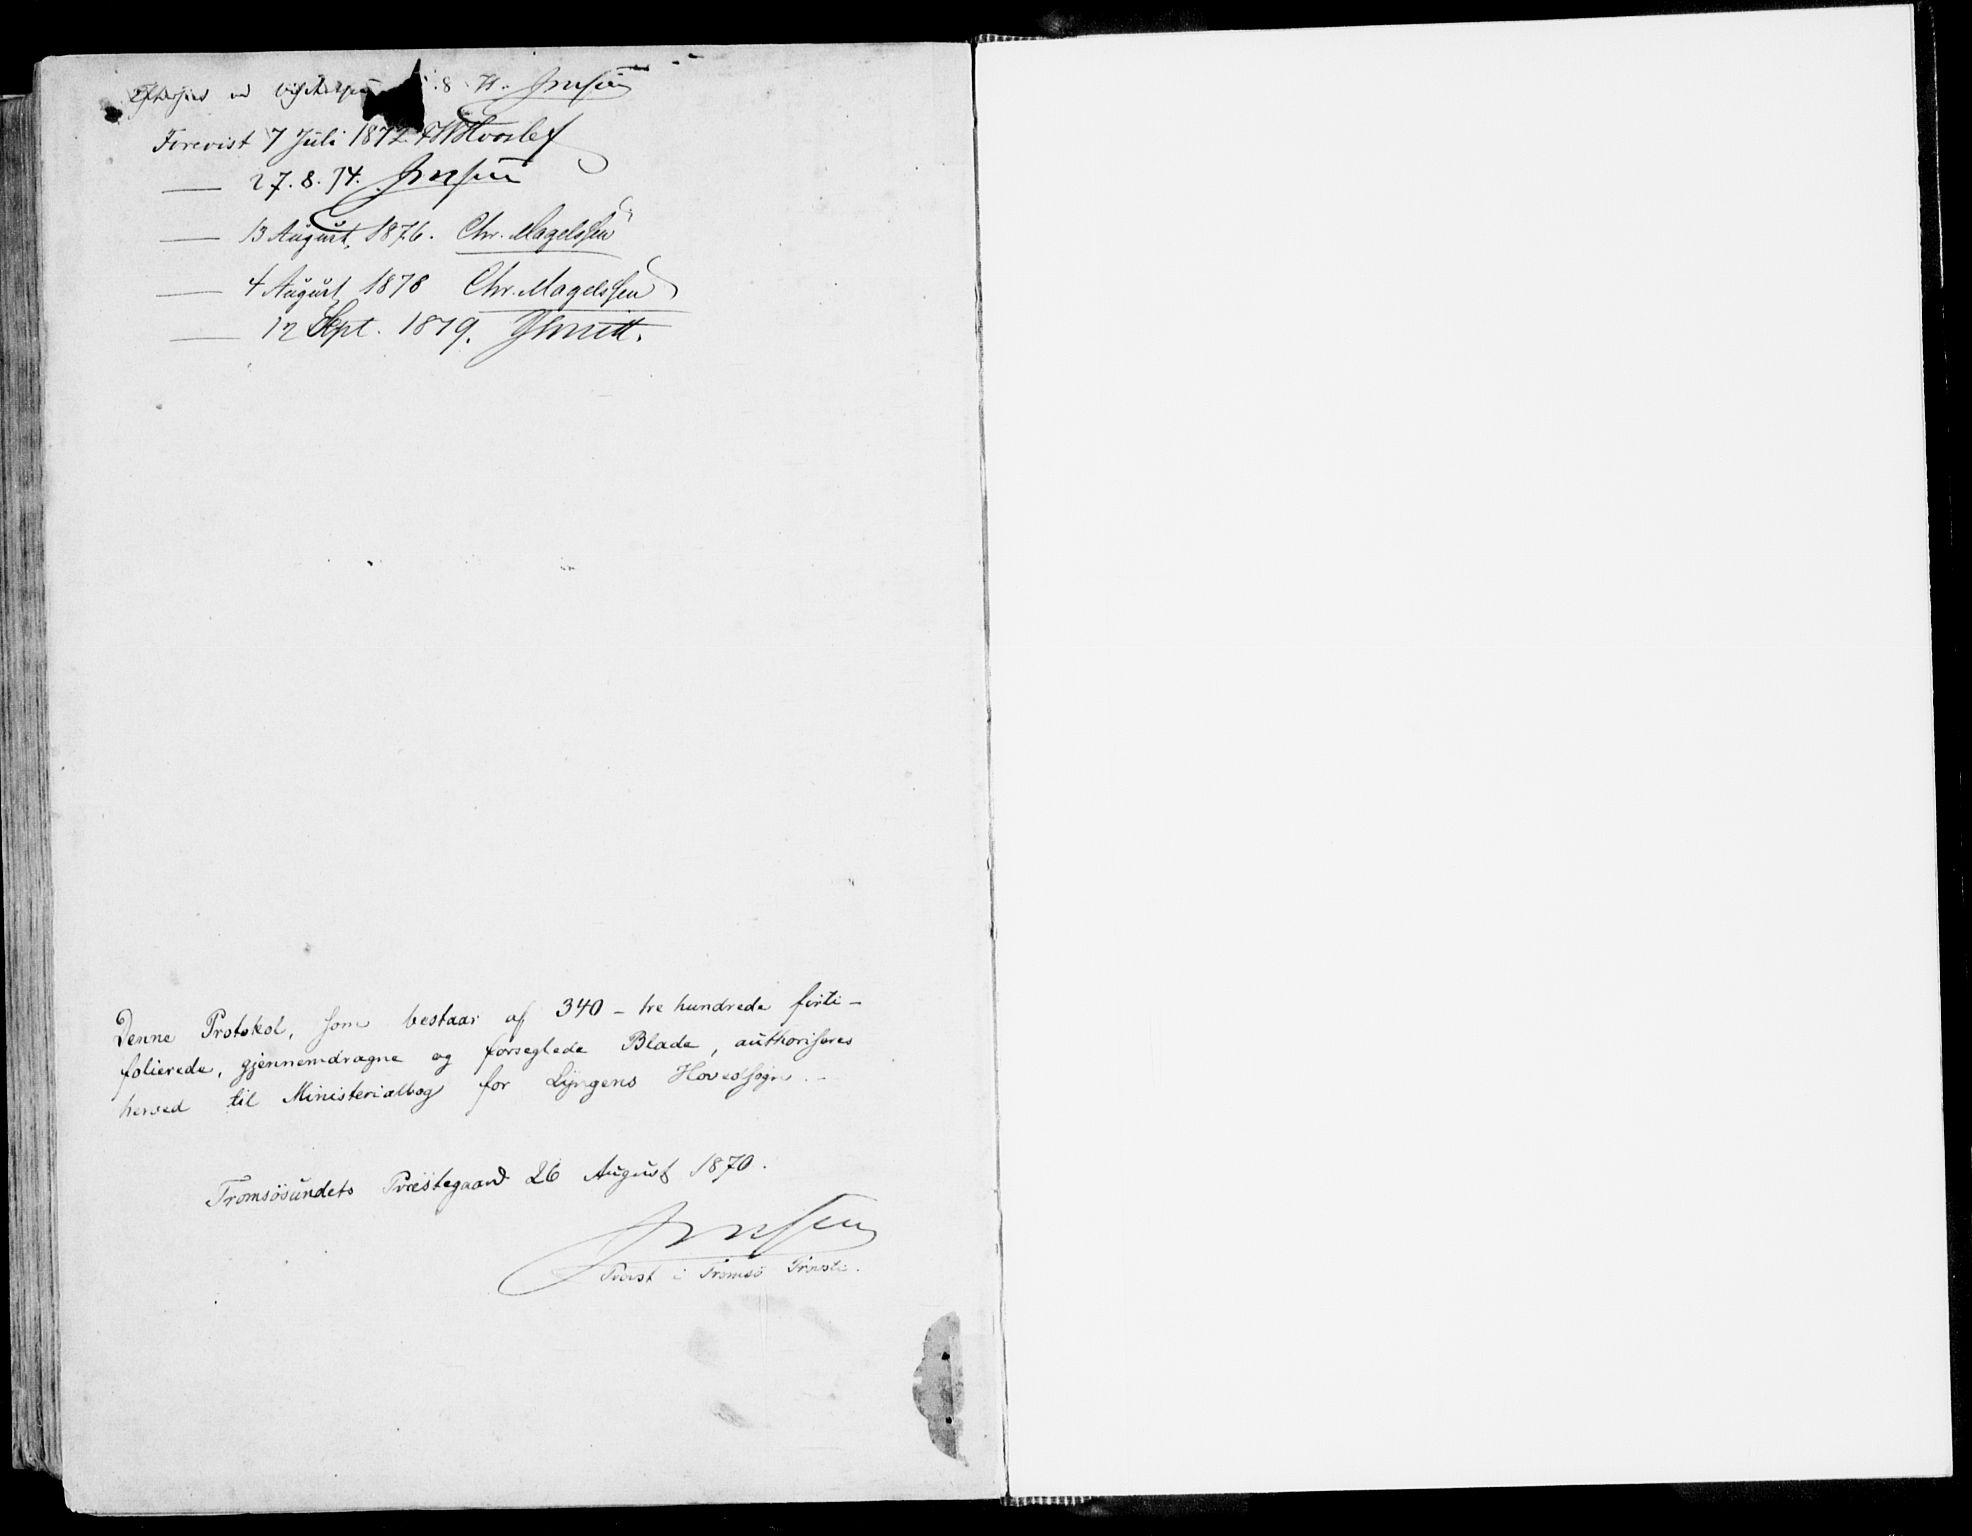 Efterseet ved Visitatsen 8. 71. Jensen
Forevist 7 Juli 1872. FWHvoslef
— 27. 8. 74. Jensen
— 13 August 1876. Chr. Magelssen
— 4 August 1878 Chr. Magelssen
— 12 Sept. 1879. JSmitt.
Denne Protokol, som bestaar af 340 – tre hundrede firti –
folierede, gjennemdragne og forseglede Blade, authoriseres
herved til Ministerialbog for Lyngens Hovedsogn. –
Tromsösundets Præstegaard 26 August 1870.
Jensen
Provst i Tromsö Provsti.